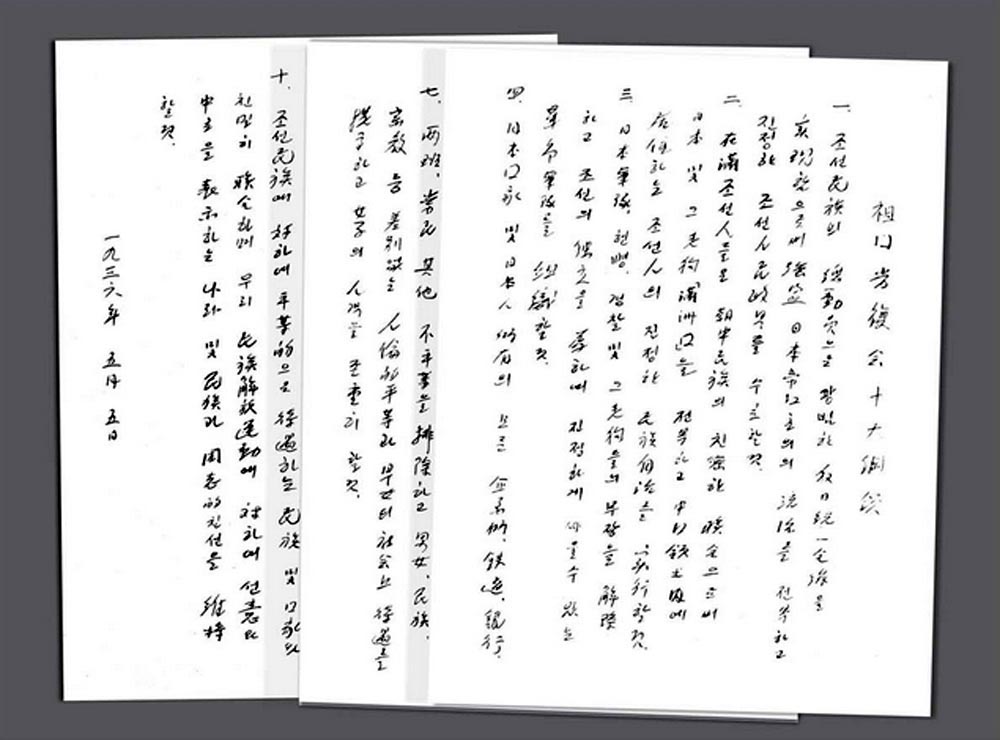 祖囗光復会十大綱領
一. 조선民族의 総動員으로 광범한 反日統一전線을
実現함으로써 強盗 日本帝囗主义의 統治를 전복하고
진정한 조선人民政부를 수立할것.
二. 在満조선人들은 朝中民族의 친密한 聯合으로써
日本 및 그 走狗 満洲囗을 전복하고 中囗領土內에
居住하는 조선人의 진정한 民族自治를 実行할것.
三. 日本軍隊, 헌병, 경찰 및 그 走狗들의 무장을 解除
하고 조선의 独立을 為하여 진정하게 싸울수 있는
革命軍隊를 組織할것.
四. 日本囗家 및 日本人 所有의 모든 企業所, 鉄道, 銀行,
七. 両班, 常民 其他 不平等을 排除하고 男女, 民族,
宗教 등 差別없는 人倫的平等과 부女의 社会上 待遇를
提高하고 女子의 人格을 존重히 할것.
十. 조선民族에 対하여 平等的으로 待遇하는 民族 및 囗家와
친밀히 聯合하며 우리 民族解放運動에 対하여 선意와
中立을 表示하는 나라 및 民族과 同志的친선을 維持
할것.
一九三六年 五月 五日